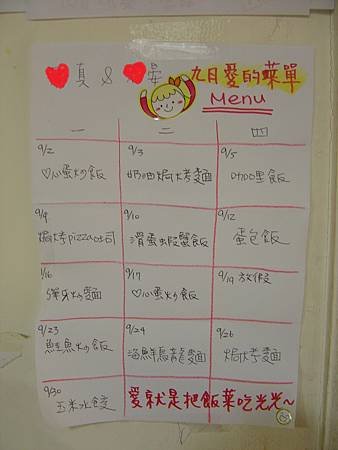 真 & 晏
九月愛的菜單
Menu
一 二 四
9/2 9/3 9/5
♡心蛋炒飯 奶油焗烤麵 咖哩飯
9/9 9/10 9/12
焗烤pizza吐司 滑蛋蝦蟹飯 蛋包飯
9/16 9/17 9/19 放假
炒麵 ♡心蛋炒飯
9/23 9/24 9/26
鮭魚炒飯 海鮮烏龍麵 焗烤麵
9/30
玉米水餃 愛就是把飯菜吃光光~